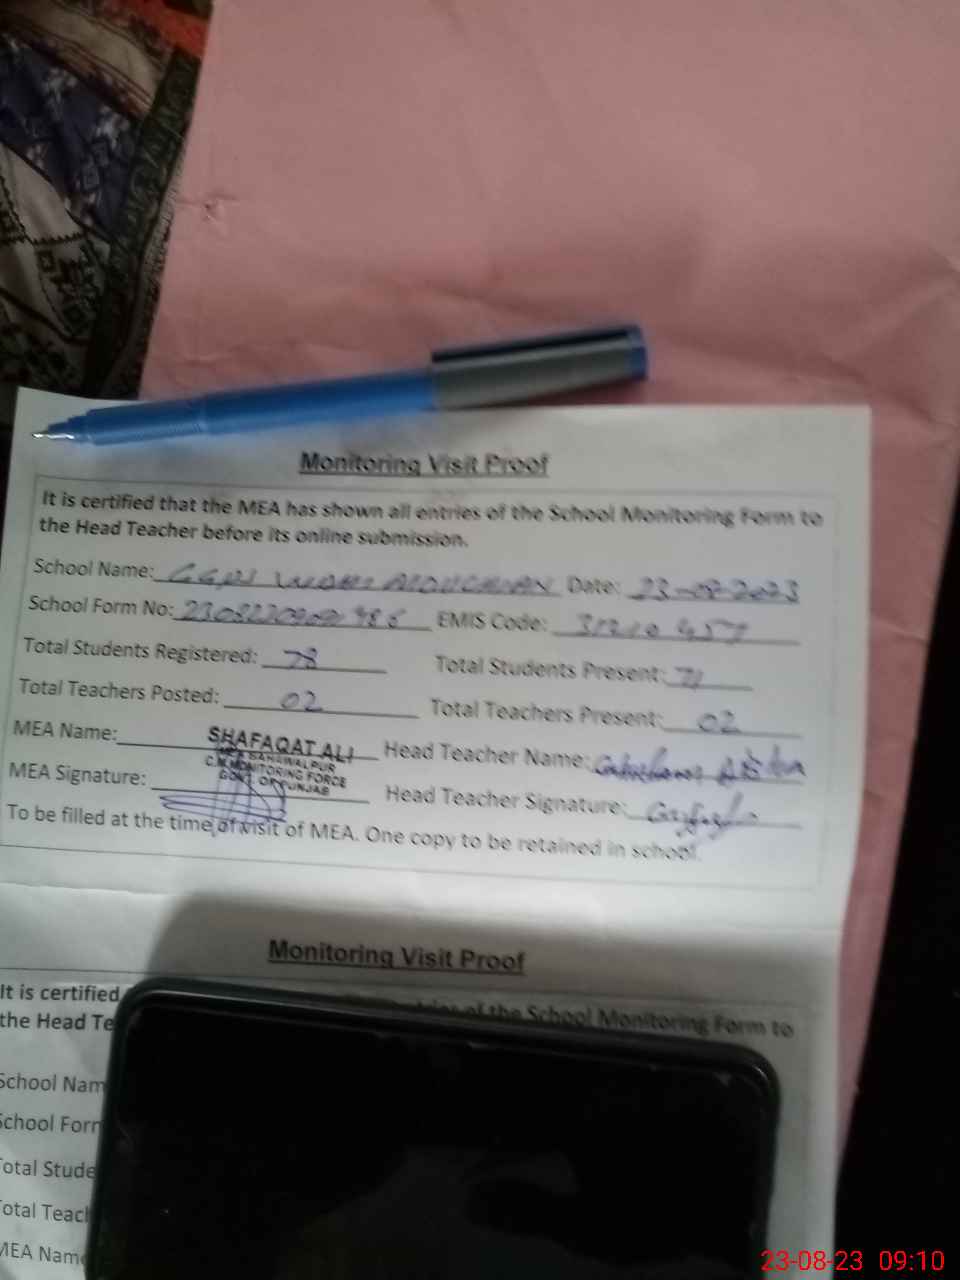 Monitoring Visit Proof
It is certified that the MEA has shown all entries of the School Monitoring Form to
the Head Teacher before its online submission.
School Name: Date: 23-08-2023
School Form No: EMIS Code:
Total Students Registered: 78 Total Students Present: 71
Total Teachers Posted: 02 Total Teachers Present: 02
MEA Name: SHAFAQAT ALI Head Teacher Name:
MEA BAHAWALPUR
C.M MONITORING FORCE
GOVT. OF PUNJAB
MEA Signature: Head Teacher Signature:
To be filled at the time of visit of MEA. One copy to be retained in school.
Monitoring Visit Proof
It is certified of the School Monitoring Form to
the Head Te
School Nam
School Form
Total Stude
Total Teach
MEA Name
23-08-23 09:10